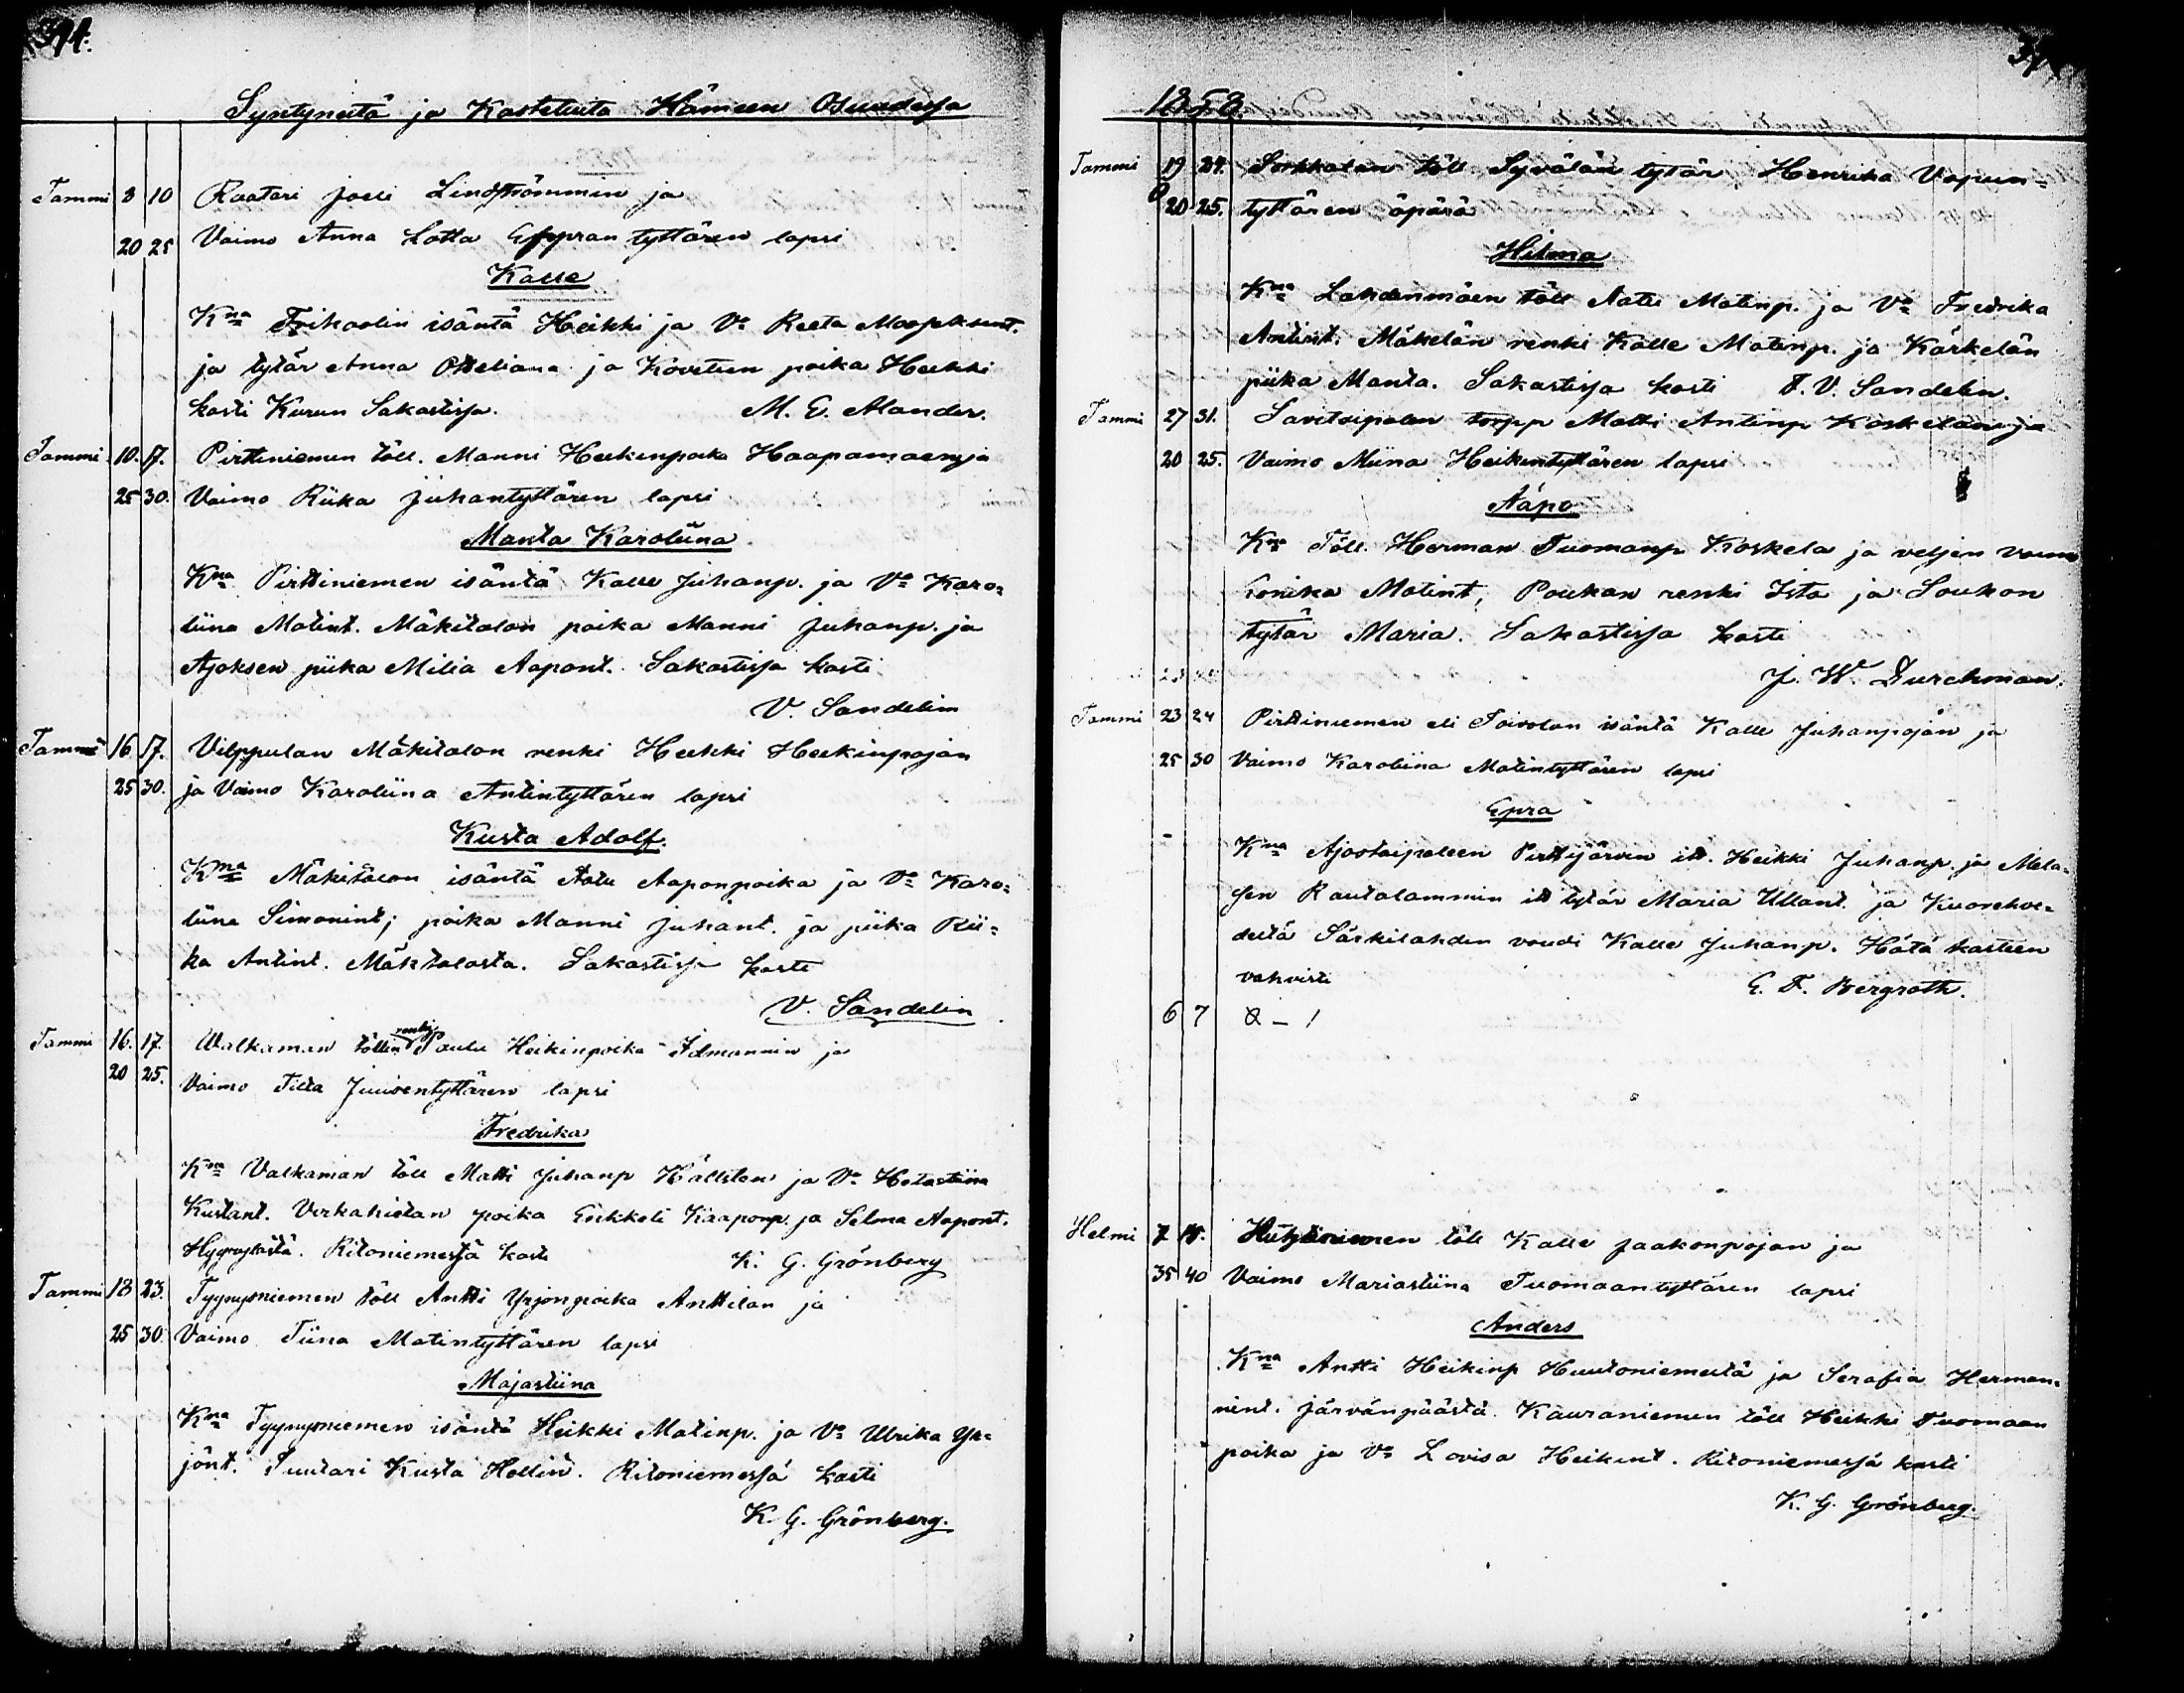 Syntyneitä ja Kastetuita Hämeen Osuudessa
Tammi 3 10 Raatari Joeli Lindströmmin ja
20 25 Vaimo Anna Lotta tyttären lapsi
Kalle
Kna isäntä Heikki ja Vo Reeta
ja tytär Anna ja poika Heikki
kasti Kurun Sakastissa. M. E. Alander.
Tammi 10. 17. Pirttiniemen töll. Manni Heikinpoika Haapamaen ja
25 30. Vaimo Riika Juhantyttären lapsi
Manta Karoliina
Kna Pirttiniemen isäntä Kalle Juhanp. ja Vo Karo=
liina Matint. Mäkitalon poika Manni Juhanp. ja
Ajoksen piika Milia Aapont. Sakastissa kasti
V. Sandelin
Tammi 16 17. Vilppulan Mäkitalon renki Heikki Heikinpojan
25 30. ja Vaimo Karoliina Antintyttären lapsi
Kusta Adolf.
Kna Mäkitalon isäntä Aatu Aaponpoika ja Vo Karo=
liina Simonint; poika Manni Juhant. ja piika Rii=
ka Antint. Mäkitalosta. Sakastissa kasti
V. Sandelin
Tammi 16. 17. Walkaman töllin renki Paulu Heikinpoika Idmannin ja
20 25. Vaimo Tilta Juusentyttären lapsi
Fredrika
Kna Valkaman töll Matti Juhanp Hällsten ja Vo
Kustant. poika Eerikkeli Kaaponp. ja Selma Aapont.
Ritoniemessä kasti K. G. Grönberg
Tammi 18 23. Tyynysniemen töll Antti Yrjonpoika Anttilan ja
25 30 Vaimo Tiina Matintyttären lapsi
Majastiina
Kna Tyynysniemen isäntä Heikki Matinp. ja Vo Ulrika Yr=
jönt. Suutari Kusta Hollin. Ritoniemessä kasti
K. G. Grönberg.
1858.
Tammi 19 24. Sorkkalan töll Syvälän tytär Henrika Vapun=
20 25. tyttären äpärä
Hilma
Kna Lahdenmäen töll Aatu Matinp. ja Vo Fredrika
Antint. Mäkelän renki Kalle Matinp. ja Kärkelän
piika Manta. Sakastissa kasti F. V. Sandelin.
Tammi 27 31. Savitaipalen torpp Matti Antinp Koskelan ja
20 25. Vaimo Miina Heikintyttären lapsi
Aapo
Kna Töll. Herman Tuomanp Koskela ja veljen vaimo
Matint, Poukan renki Ista ja Soukon
tytär Maria. Sakastissa kasti
J. W. Durchman.
Tammi 23 24 Pirttiniemen eli Toivolan isäntä Kalle Juhanpojan ja
25 30 Vaimo Karoliina Matintyttären lapsi
Epra
Kna Ajostaipaleen Pirttijärven itl. Heikki Juhanp. ja Mela=
sen Rautalammin itl tytär Maria Ullant. ja Kuorehve=
deltä Särkilahden voudi Kalle Juhanp. Hätä kasteen
vahvisti E. F. Bergroth.
6 7 2 – 1
Helmi 7 14. töll Kalle Jaakonpojan ja
35 40 Vaimo Mariastiina Tuomaantyttären lapsi
Anders
Kna Antti Heikinp Huutoniemeltä ja Serafia Herman=
nint. Järvänpäästä. Kauraniemen töll Heikki Tuomaan
poika ja Vo Lovisa Heikint. Ritoniemessä kasti
K. G. Grönberg.